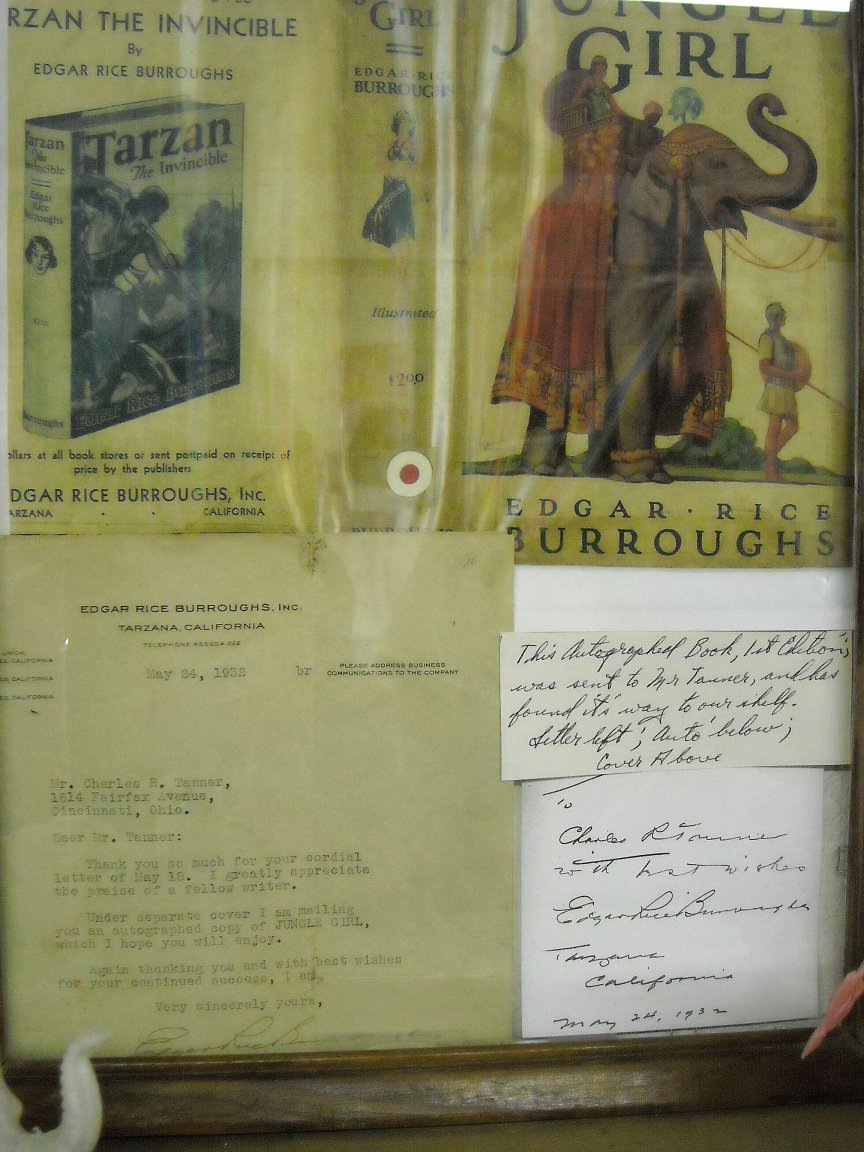 RZAN THE INVINCIBLE
By
EDGAR RICE BURROUGHS
Tarzan
The
Invincible
Edgar
Rice
Burroughs
Burroughs
Tarzan
The Invincible
Edgar Rice Burroughs
ollars at all book stores or sent postpaid on receipt of
price by the publishers
DGAR RICE BURROUGHS, INC.
ARZANA · · CALIFORNIA
GIRL
EDGAR RICE
BURROUGHS
Illustrated
$2.00
JUNGLE
GIRL
EDGAR · RICE
BURROUGHS
EDGAR RICE BURROUGHS, INC.
TARZANA, CALIFORNIA
TELEPHONE RESEDA 222
UNION:
ES, CALIFORNIA
ES, CALIFORNIA
ES, CALIFORNIA
May 24, 1932
br
PLEASE ADDRESS BUSINESS
COMMUNICATIONS TO THE COMPANY
Mr. Charles R. Tanner,
1614 Fairfax Avenue,
Cincinnati, Ohio.
Dear Mr. Tanner:
Thank you so much for your cordial
letter of May 18. I greatly appreciate
the praise of a fellow writer.
Under separate cover I am mailing
you an autographed copy of JUNGLE GIRL,
which I hope you will enjoy.
Again thanking you and with best wishes
for your continued success, I am
Very sincerely yours,
Edgar Rice Bu
This Autographed Book, 1st Edition,
was sent to Mr Tanner, and has
found it's way to our shelf.
Letter left; 'Auto' below;
Cover Above
To
Charles R Tanner
with best wishes
Edgar Rice Burroughs
Tarzana
California
May 24, 1932